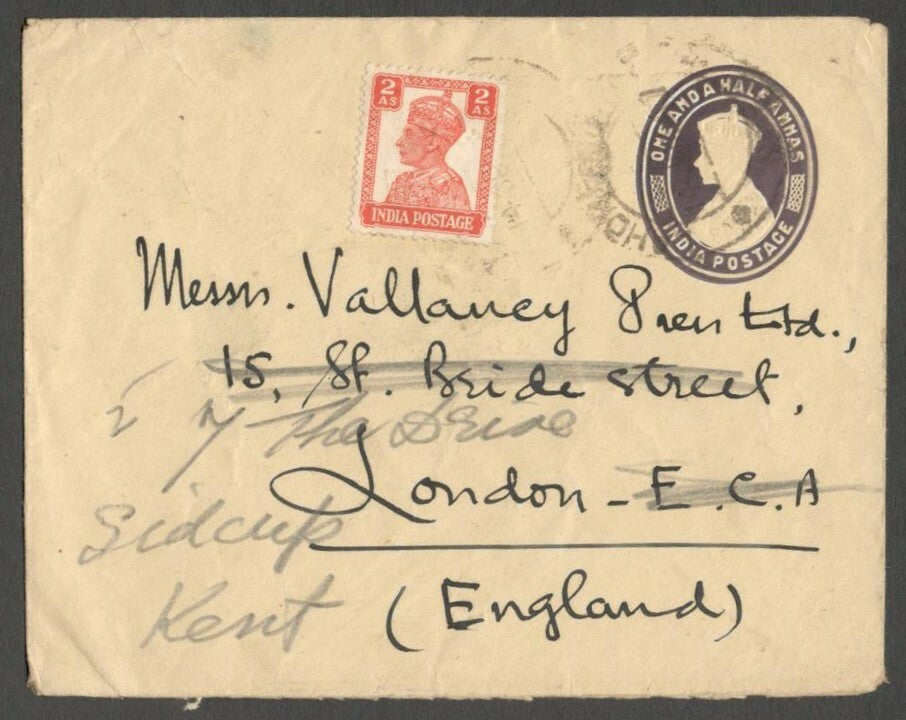 2 AS 2 AS
INDIA POSTAGE
ONE AND A HALF ANNAS
INDIA POSTAGE
Messrs. Vallancey Press Ltd.,
15, St. Bride Street,
7 The Drive
London - E.C.4
Sidcup
Kent
(England)